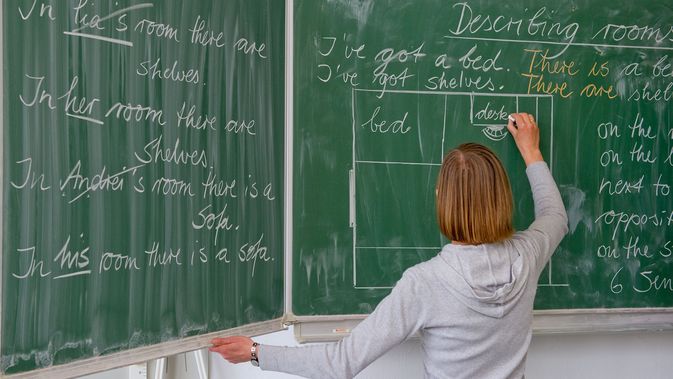 In lia's room there are
shelves.
In her room there are
shelves.
In Andrei's room there is a
sofa.
In his room there is a sofa.
Describing rooms
I've got a bed. There is a bed
I've got shelves. There are shel
bed
desk
on the
on the
next to
opposit
on the
6 Sen